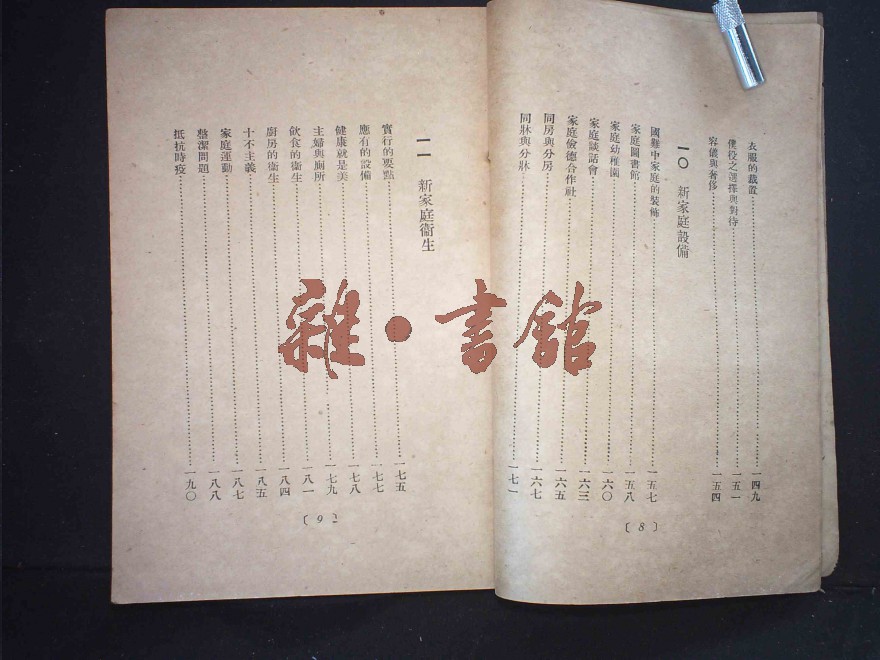 衣服的裁置 一四九
僕役之選擇與對待 一五一
容儀與奢侈 一五四
一〇 新家庭設備
國難中家庭的裝飾 一五七
家庭圖書館 一五八
家庭幼稚園 一六〇
家庭談話會 一六三
家庭儉德合作社 一六五
同房與分房 一六七
同牀與分牀 一七一
〔8〕
一一 新家庭衞生
實行的要點 一七五
應有的設備 一七七
健康就是美 一七八
主婦與廁所 一七九
飲食的衞生 一八一
廚房的衞生 一八四
十不主義 一八五
家庭運動 一八七
整潔問題 一八八
抵抗時疫 一九〇
〔92
雜·書館